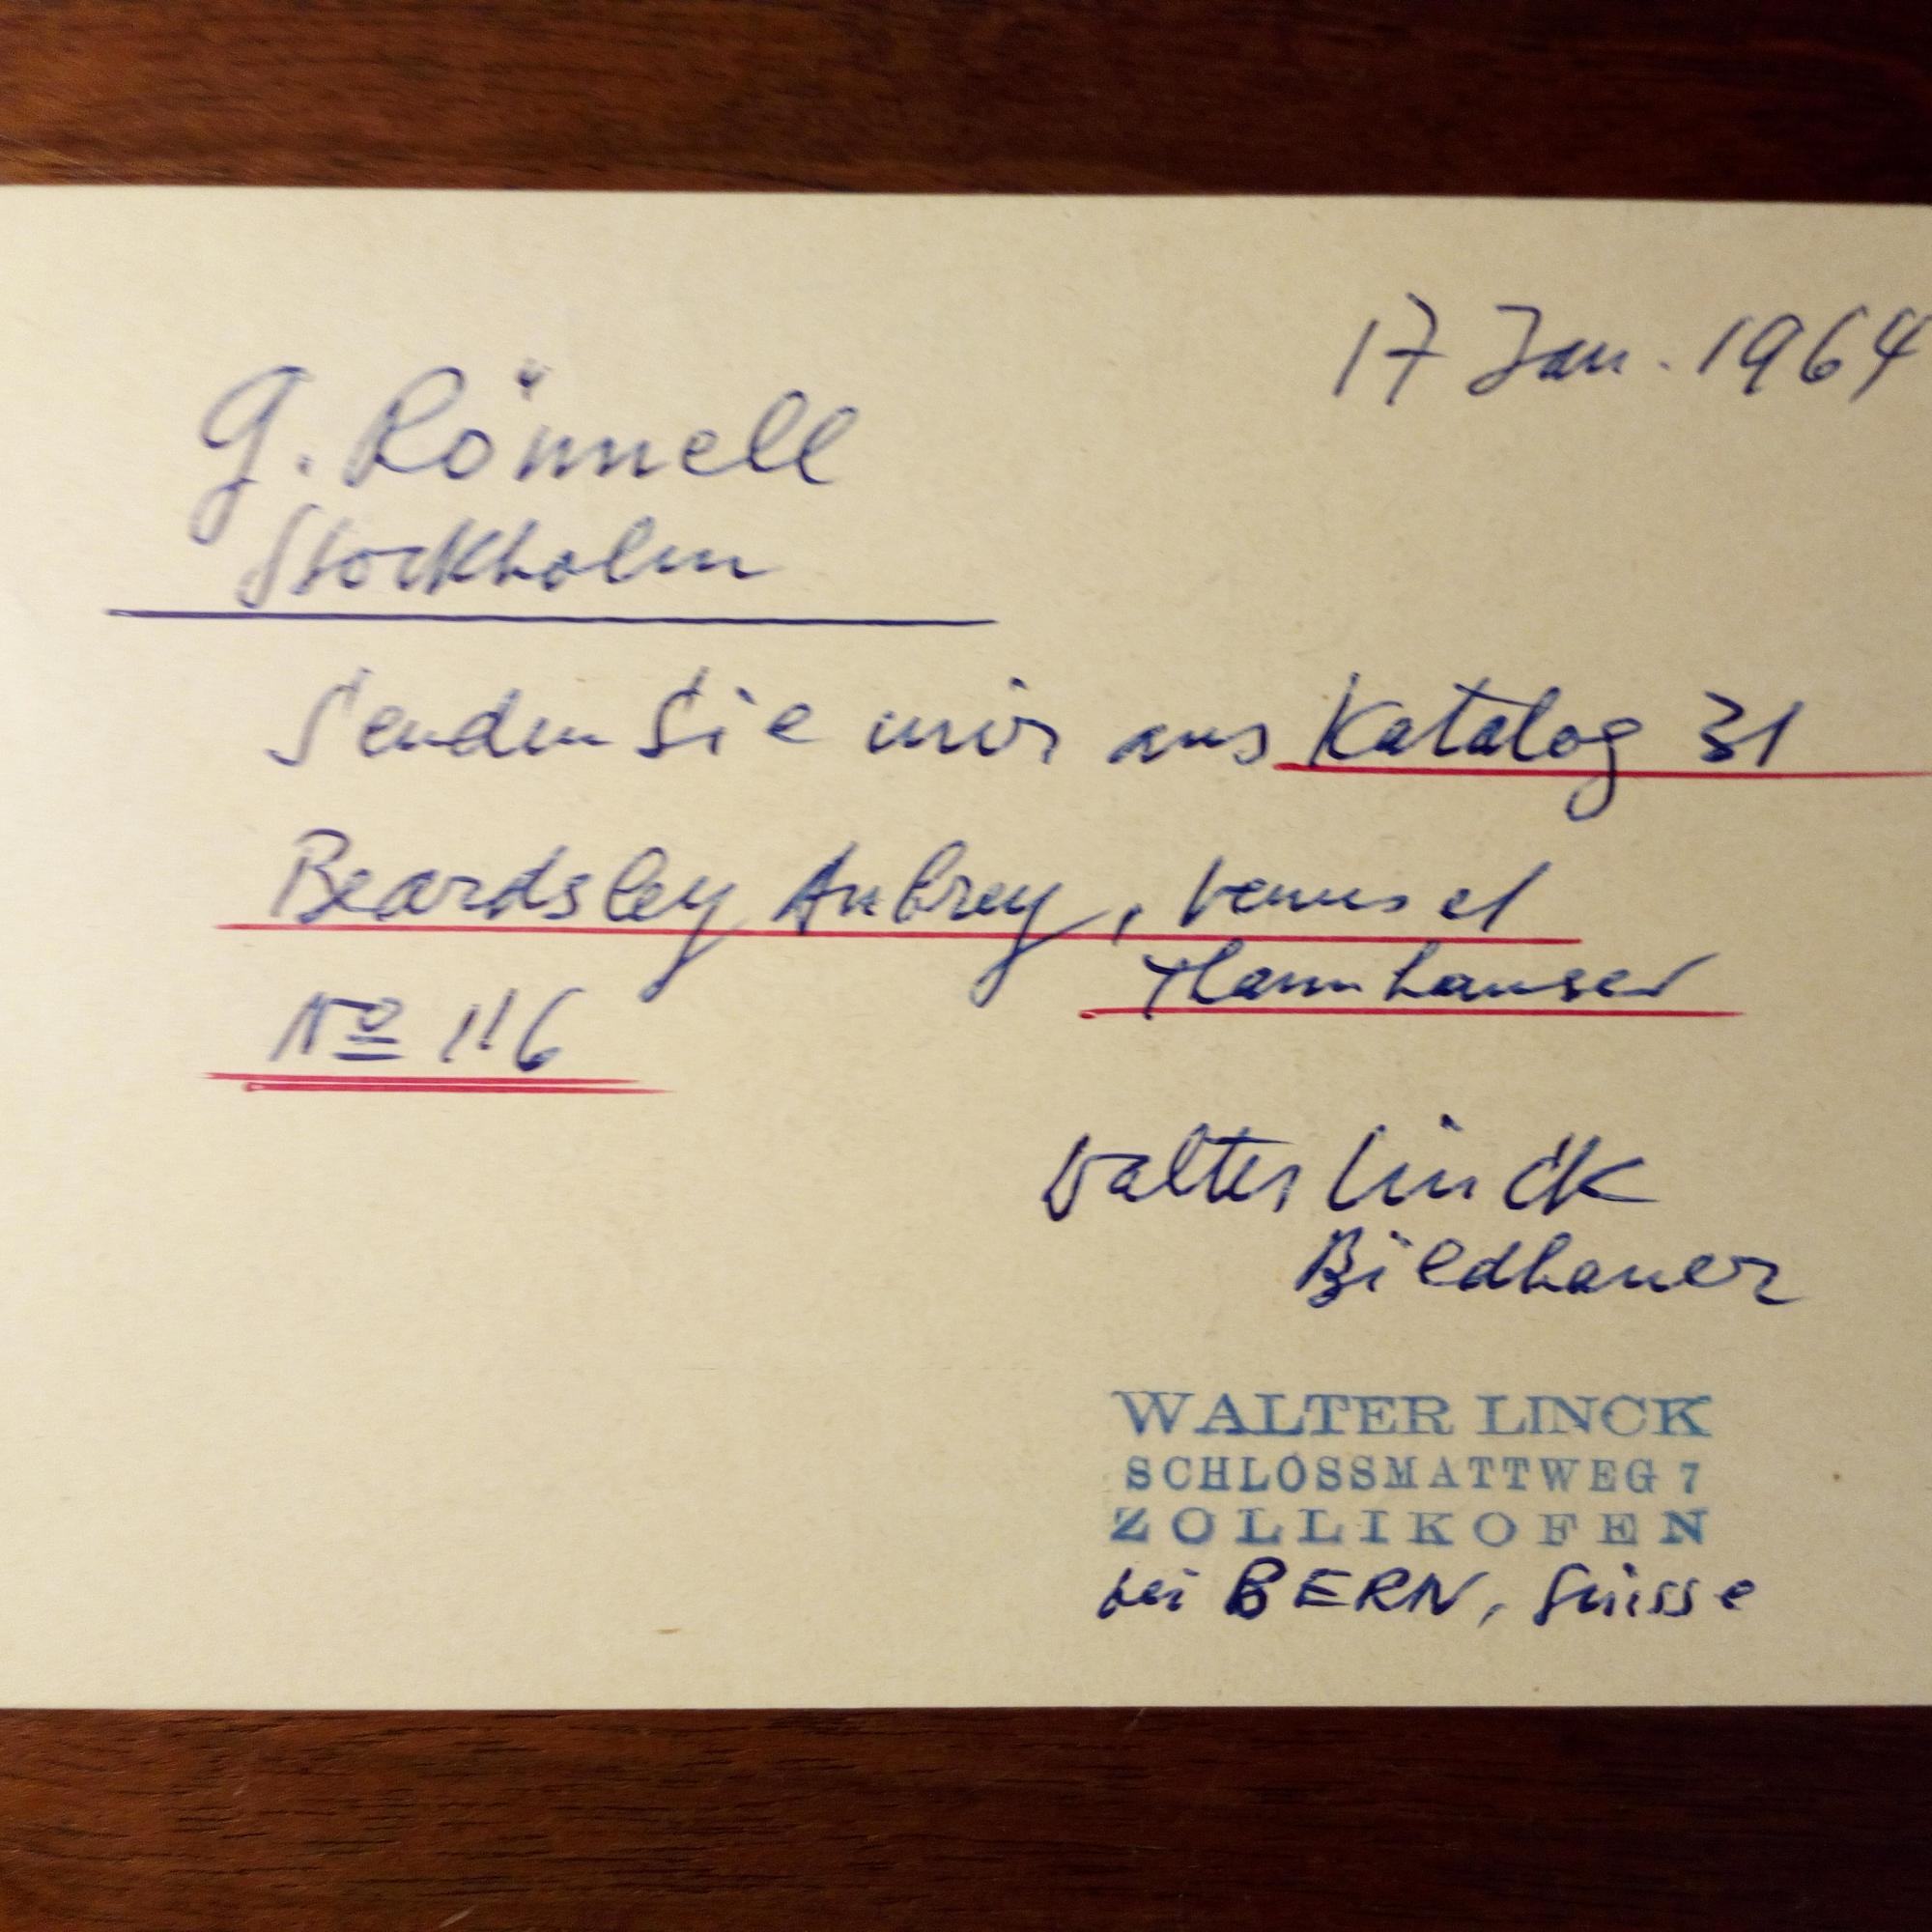 17 Jan. 1964
G. Rönnell
Stockholm
Senden Sie mir aus Katalog 31
Beardsley Aubrey, Venus et
Thannhauser
No 116
Walter Linck
Bildhauer
WALTER LINCK
SCHLOSSMATTWEG 7
ZOLLIKOFEN
bei BERN, Suisse